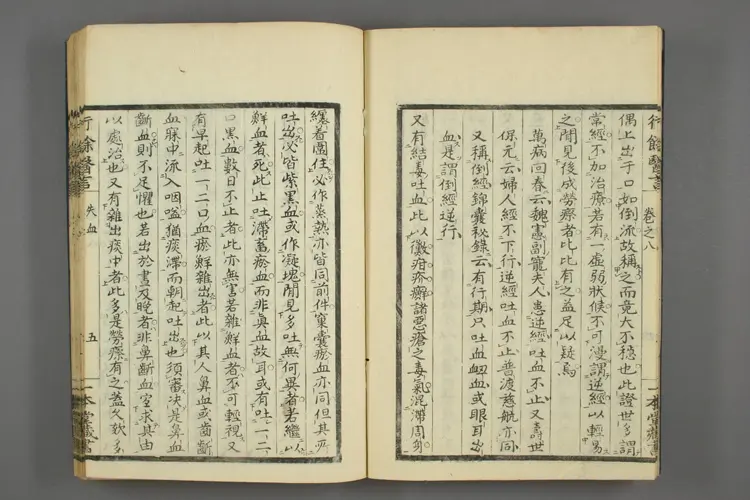 行餘醫言
卷之八
一本堂藏書
偶上出于口如倒流故稱之而竟大不穩也此證世多謂
常經不加治療若有一虛弱狀候不可漫謂逆經以輕易
之間見後成勞瘵者比比有之益足以疑焉
萬病回春云魏憲副寵夫人患逆經吐血不止又壽世
保元云婦人經不下行逆經吐血不止普渡慈航亦同
又稱倒經錦囊秘錄云有行期只吐血衄血或眼耳出
血是謂倒經逆行
又有結毒吐血此以黴疳疥癬諸惡瘡之毒氣混滯周身
纏着圍住必作蒸熱亦皆同前件窠囊瘀血亦同但其所
吐出必皆紫黑血或作凝塊間見多吐無何異者若繼以
鮮血者死此止吐滯蓄瘀血而非眞血故耳或有吐一二
口黑血數日不止者此亦無害若雜鮮血者不可輕視又
有早起吐一二口血瘀鮮雜出者此以其人鼻血或齒斷
血寐中流入咽嗌猶痰滯而朝起吐出也須審決是鼻血
斷血則不足懼也若出於晝及晚者非鼻斷血宜求其由
以處治也又有雜出痰中者此多是勞瘵有之益久欬多
行餘醫言
失血
五
一本堂藏書